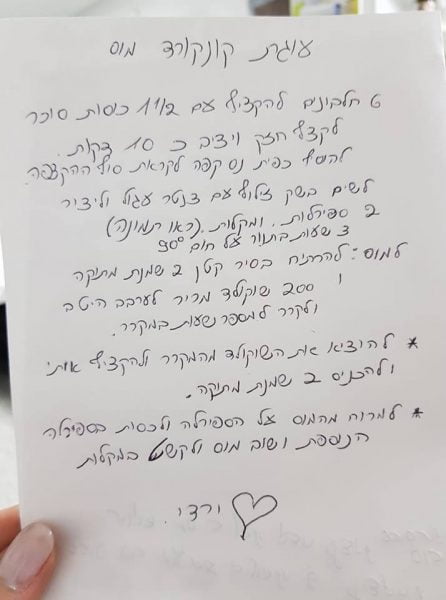 עוגת קונקורד מוס
6 חלבונים להקציף עם 1/2 1 כוסות סוכר
לקצף חזק ויציב כ 10 דקות.
להוסיף כפית נס קפה לקראת סוף ההקצפה.
לשים בשק זילוף עם צנטר עגול וליצור
2 ספירלות. ומקלות. (ראו תמונה)
3 שעות בתנור על חום 90°
למוס: להרתיח בסיר קטן 2 שמנת מתיקה
ו 200 שוקולד מריר לערבב היטב
ולקרר למספר שעות במקרר.
* להוציא את השוקולד מהמקרר ולהקציף אותו
ולהכניס 2 שמנת מתיקה.
* למרוח מהמוס על הספירלה ולכסות בספירלה
הנוספת ושוב מוס ולקשט במקלות
ורדי.